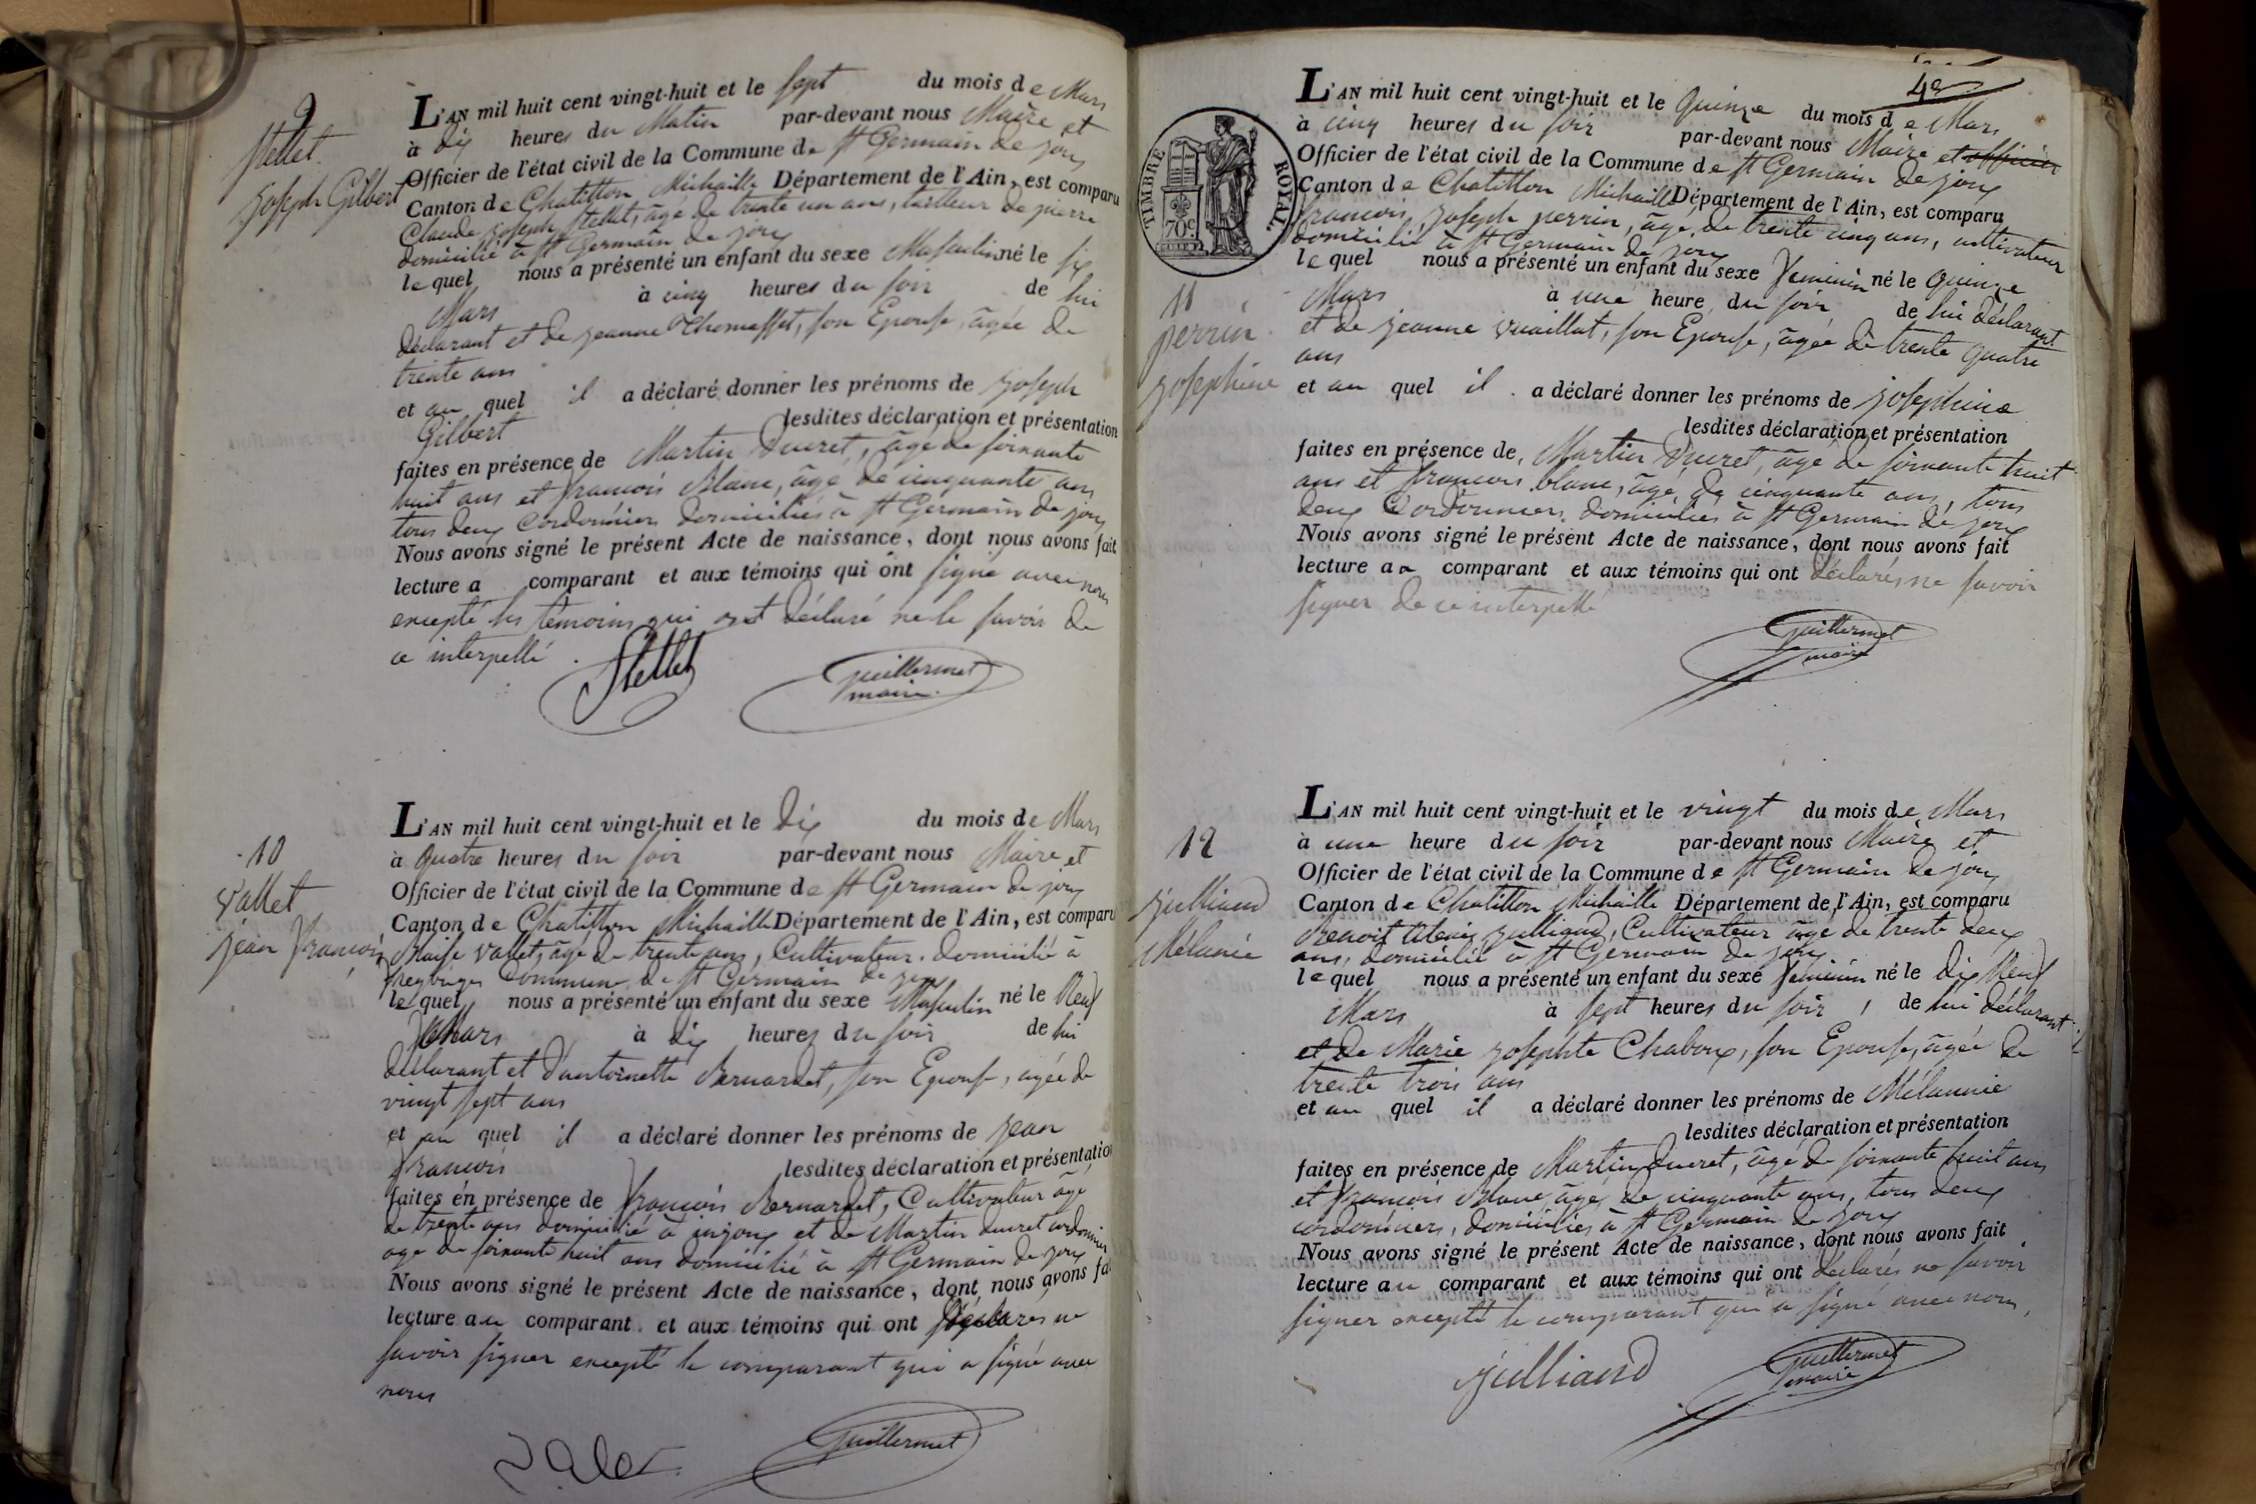 9
Stellet
Joseph Gilbert
L'AN mil huit cent vingt-huit et le sept du mois de Mars
à dix heures du Matin par-devant nous Maire et
Officier de l'état civil de la Commune de St Germain de joux
Canton de Chatillon Michaille Département de l'Ain, est comparu
Claude joseph Stellet, âgé de trente un ans, tailleur de pierre
domicilié à St Germain de joux
lequel nous a présenté un enfant du sexe Masculin né le six
Mars à cinq heures du soir de lui
déclarant et de jeanne Thomasset, son Epouse, âgée de
trente ans
et au quel il a déclaré donner les prénoms de joseph
Gilbert lesdites déclaration et présentation
faites en présence de Martin Ducret, âgé de soixante
huit ans et françois Blanc, âgé de cinquante ans
tous deux Cordonniers domiciliés à St Germain de joux
Nous avons signé le présent Acte de naissance, dont nous avons fait
lecture a comparant et aux témoins qui ont signé avec nous
excepté les témoins qui ont déclaré ne le savoir de
ce interpellé
Stellet Guillermet
maire
10
Vallet
jean françois
L'AN mil huit cent vingt-huit et le dix du mois de Mars
à quatre heures du soir par-devant nous Maire et
Officier de l'état civil de la Commune de St Germain de joux
Canton de Chatillon Michaille Département de l'Ain, est comparu
Blaise Vallet, âgé de trente ans, Cultivateur domicilié à
Commune de St Germain de joux
lequel nous a présenté un enfant du sexe Masculin né le Neuf
Mars à dix heures du soir de lui
déclarant et d'antoinette Bernardet, son Epouse, agée de
vingt sept ans
et au quel il a déclaré donner les prénoms de jean
françois lesdites déclaration et présentation
faites en présence de françois Bernardet, Cultivateur âgé
de trente ans domicilié à injoux et de Martin ducret cordonnier
age de soixante huit ans domicilié à St Germain de joux
Nous avons signé le présent Acte de naissance, dont nous avons fai
lecture au comparant et aux témoins qui ont déclarés ne
savoir signer excepté le comparant qui a signé avec
nous
Guillermet
4e
TIMBRE ROYAL
70c
11
perrin
josephine
L'AN mil huit cent vingt-huit et le Quinze du mois de Mars
à cinq heures du soir par-devant nous Maire et officier
Officier de l'état civil de la Commune de St Germain de joux
Canton de Chatillon Michaille Département de l'Ain, est comparu
françois joseph perrin, âgé de trente cinq ans, cultivateur
domicilié à St Germain de joux
lequel nous a présenté un enfant du sexe feminin né le Quinze
Mars à une heure du soir de lui déclarant
et de jeanne Vuaillat, son Epouse, âgée de trente quatre
ans
et au quel il a déclaré donner les prénoms de josephine
lesdites déclaration et présentation
faites en présence de Martin Ducret, âgé de soixante huit
ans et françois blanc, âgé de cinquante ans, tous
deux Cordonniers domiciliés à St Germain de joux
Nous avons signé le présent Acte de naissance, dont nous avons fait
lecture au comparant et aux témoins qui ont déclarés ne savoir
signer de ce interpellé
Guillermet
maire
12
julliand
Mélanie
L'AN mil huit cent vingt-huit et le vingt du mois de Mars
à une heure du soir par-devant nous Maire et
Officier de l'état civil de la Commune de St Germain de joux
Canton de Chatillon Michaille Département de l'Ain, est comparu
Benoit Alexis julliand, Cultivateur âgé de trente deux
ans, domicilié à St Germain de joux
lequel nous a présenté un enfant du sexe feminin né le dix Neuf
Mars à sept heures du soir, de lui déclarant
et de Marie josephte Chaboux, son Epouse, âgée de
trente trois ans
et au quel il a déclaré donner les prénoms de Mélannie
lesdites déclaration et présentation
faites en présence de Martin ducret, âgé de soixante huit ans
et françois Blanc, âgé de cinquante ans, tous deux
cordonniers, domiciliés à St Germain de joux
Nous avons signé le présent Acte de naissance, dont nous avons fait
lecture au comparant et aux témoins qui ont déclarés ne savoir
signer excepté le comparant qui a signé avec nous,
julliand Guillermet
maire